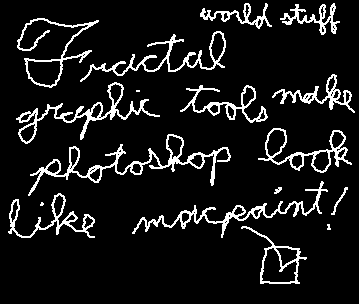 world stuff
Fractal
graphic tools make
photoshop look
like macpaint!